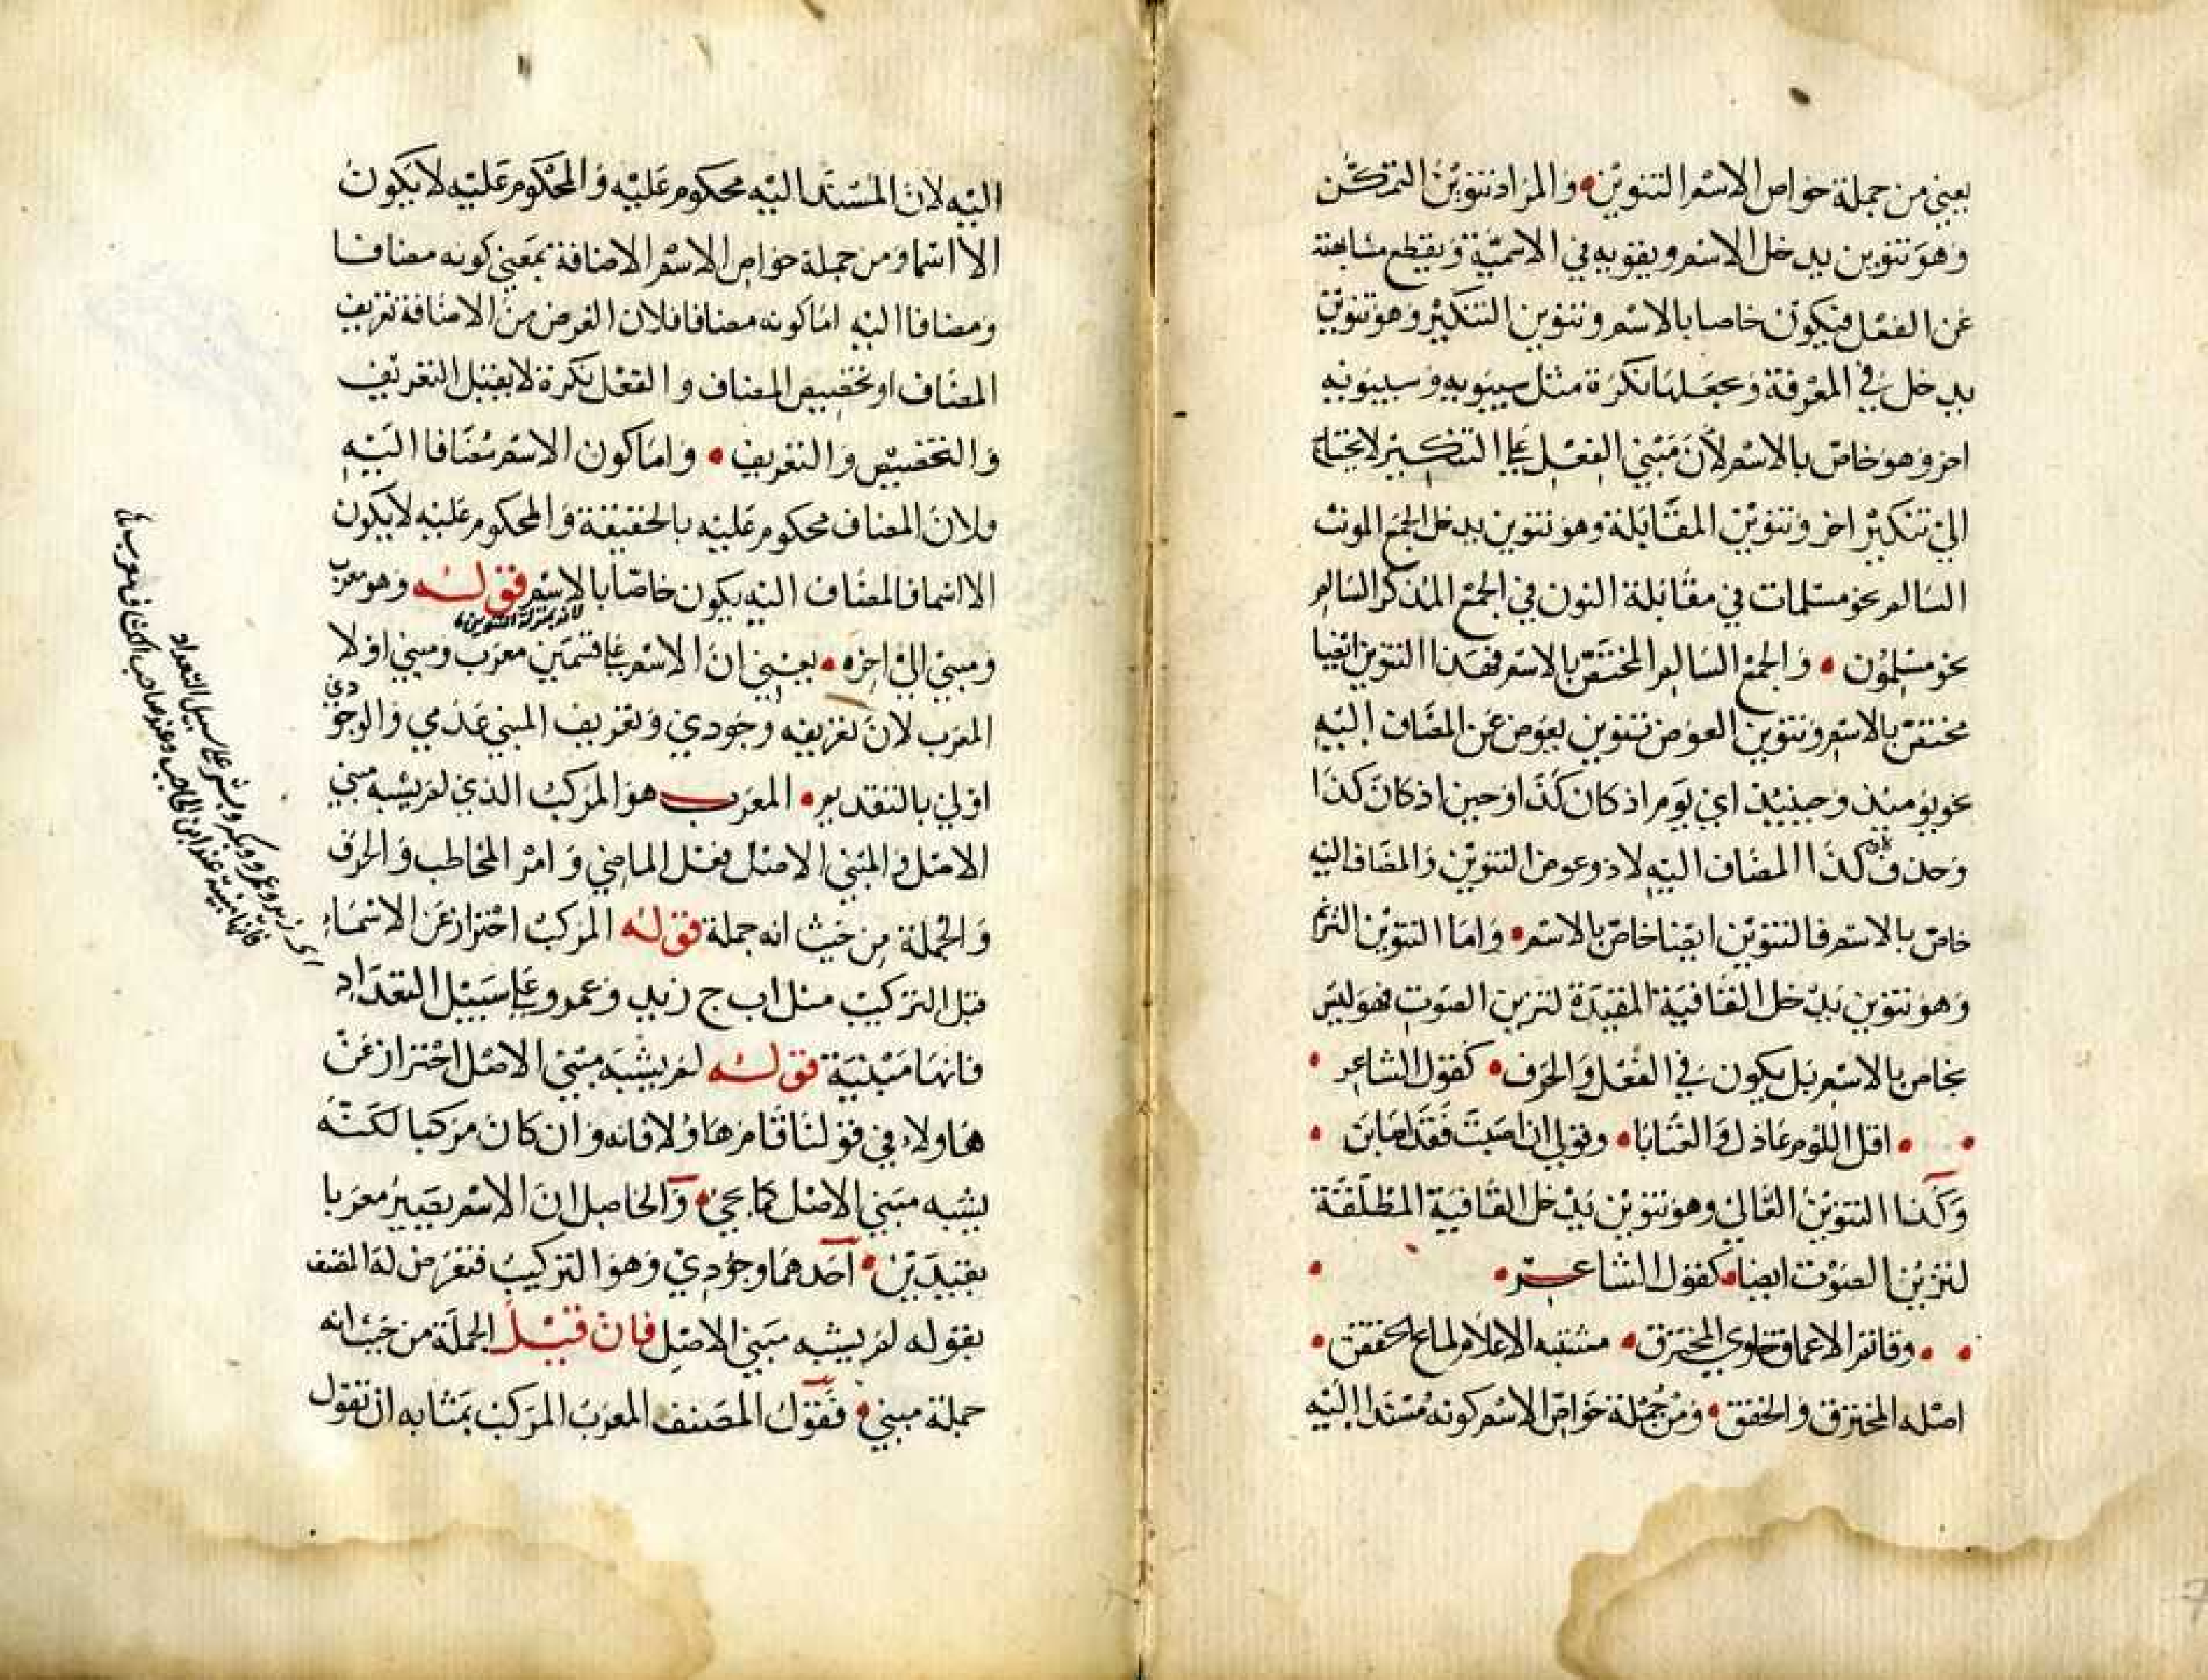 يعني من جملة خواص الاسم التنوين • والمراد تنوين التمكن
وهو تنوين يدخل الاسم ويقويه في الاسمية ويقطع مشابهته
عن الفعل فيكون خاصا بالاسم وتنوين التنكير وهو تنوين
يدخل في المعرفة ويجعلها نكرة مثل سيبويه وسيبويه
اخر وهو خاص بالاسم لان مبني الفعل على التنكير لا يحتاج
الى تنكير اخر وتنوين المقابلة وهو تنوين يدخل الجمع المونث
السالم نحو مسلمات في مقابلة النون في الجمع المذكر السالم
نحو مسلمون • والجمع السالم المختص بالاسم فهذا التنوين ايضا
مختص بالاسم وتنوين العوض تنوين يعوض عن المضاف اليه
نحو يومئذ وحينئذ اي يوم اذ كان كذا او حين اذ كان كذا
وحذف كذا المضاف اليه لاذ وعوض التنوين والمضاف اليه
خاص بالاسم فالتنوين ايضا خاص بالاسم • واما التنوين الترنم
وهو تنوين يدخل القافية المقيدة لتزين الصوت فهو ليس
بخاص بالاسم بل يكون في الفعل والحرف • كقول الشاعر •
• • اقل اللوم عاذل والعتابا • وقولي ان اصبت فقد اصابن •
وكذا التنوين الغالي وهو تنوين يدخل القافية المطلقة
لتزين الصوت ايضا • كقول الشاعر • •
• • وقاتم الاعماق خاوي المخترق • مشتبه الاعلام لماع الخفقن •
اصله المخترق والخفق • ومن جملة خواص الاسم كونه مسندا اليه
اليه لان المسند اليه محكوم عليه والمحكوم عليه لا يكون
الا اسما ومن جملة خواص الاسم الاضافة بمعني كونه مضافا
ومضافا اليه اما كونه مضافا فلان الغرض من الاضافة تعريف
المضاف او تخصيص المضاف والفعل نكرة لا يقبل التعريف
والتخصيص والتعريف • واما كون الاسم مضافا اليه
ولان المضاف محكوم عليه بالحقيقة والمحكوم عليه لا يكون
الا اسما فالمضاف اليه يكون خاصا بالاسم قوله وهو معرب
لانه بمنزلة التنوين
ومبني الى اخره • يعني ان الاسم على قسمين معرب ومبني اولا
المعرب لان تعريفه وجودي وتعريف المبني عدمي والوجودي
اولى بالتقديم • المعرب هو المركب الذي لم يشبه مبني
الاصل والمبني الاصل فعل الماضي وامر المخاطب والحرف
والجملة من حيث انه جملة قوله المركب احتراز عن الاسماء
قبل التركيب مثل ا ب ج زيد وعمرو على سبيل التعداد
فانها مبنية قوله لم يشبه مبني الاصل احتراز عن
هاولاء في قولنا قام هاولا فانه وان كان مركبا لكنه
يشبه مبني الاصل كما يجي • والحاصل ان الاسم يصير معربا
بقيدين • احدهما وجودي وهو التركيب فتعرض له المصنف
بقوله لم يشبه مبني الاصل فان قيل الجملة من حيث انه
جملة مبني • فقول المصنف المعرب المركب بمثابه ان تقول
اي زيد وعمرو وبكر وبشر على سبيل التعداد
فانها مبنية عند ابن الحاجب وعند صاحب الكشاف معرب